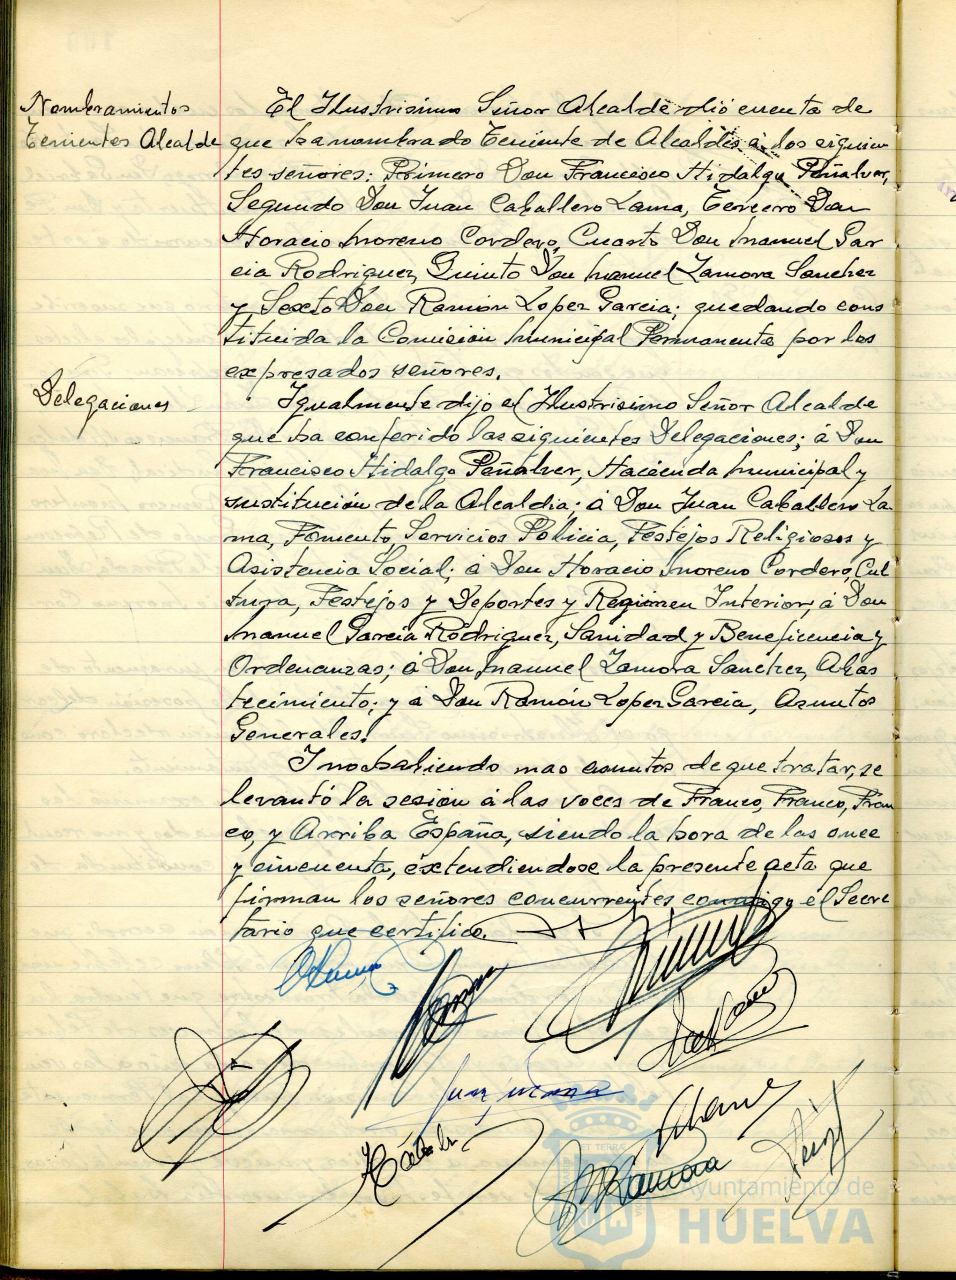 Nombramientos
Tenientes Alcalde
El Ilustrisimo Señor Alcalde dió cuenta de
que ha nombrado Teniente de Alcaldes á los siguien
tes señores: Primero Don Francisco Hidalgo Peñalver,
Segundo Don Juan Caballero Lama, Tercero Don
Horacio Moreno Cordero, Cuarto Don Manuel Gar
cia Rodriguez, Quinto Don Manuel Zamora Sanchez
y Sexto Don Ramón Lopez Garcia; quedando cons
tituida la Comision Municipal Permanente por los
expresados señores.
Delegaciones
Igualmente dijo el Ilustrisimo Señor Alcalde
que ha conferido las siguientes Delegaciones; á Don
Francisco Hidalgo Peñalver, Hacienda Municipal y
sustitución de la Alcaldia; á Don Juan Caballero La
ma, Fomento Servicios Policia, Festejos Religiosos y
Asistencia Social; á Don Horacio Moreno Cordero, Cul
tura, Festejos y Deportes y Regimen Interior; á Don
Manuel García Rodriguez, Sanidad y Beneficencia y
Ordenanzas; á Don Manuel Zamora Sanchez, Abas
tecimiento; y á Don Ramón Lopez Garcia, Asuntos
Generales.
I no habiendo mas asuntos de que tratar, se
levantó la sesión á las voces de Franco, Franco, Fran
co, y Arriba España, siendo la hora de las once
y cincuenta, extendiendose la presente acta que
firman los señores concurrentes conmigo el Secre
tario que certifico.
Zamora
Ayuntamiento de
HUELVA